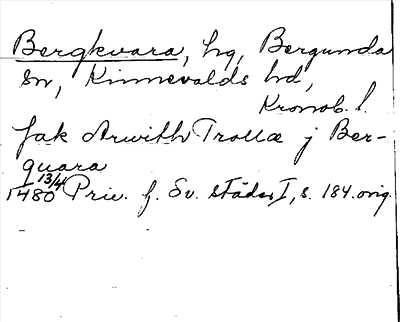 Bergkvara, hg, Bergunda
sn, Kinnevalds hd,
Kronob. l.
Jak Arwith Trollæ j Ber-
quara
13/4
1480 Priv. f. Sv. städer I, s. 184. orig.